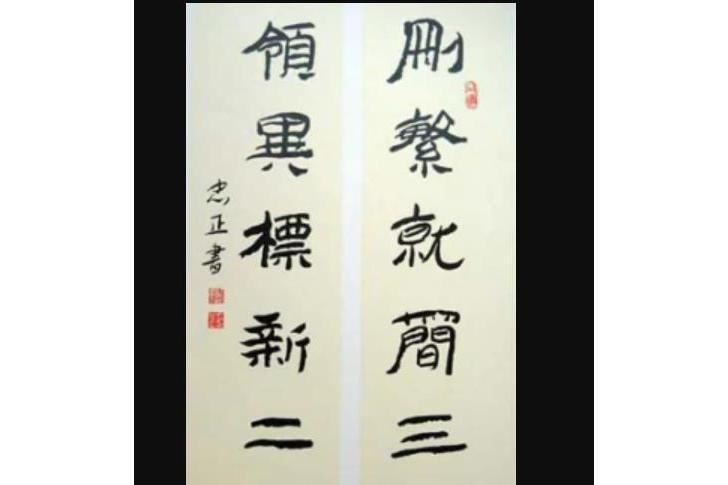 刪繁就簡三
領異標新二
忠正書